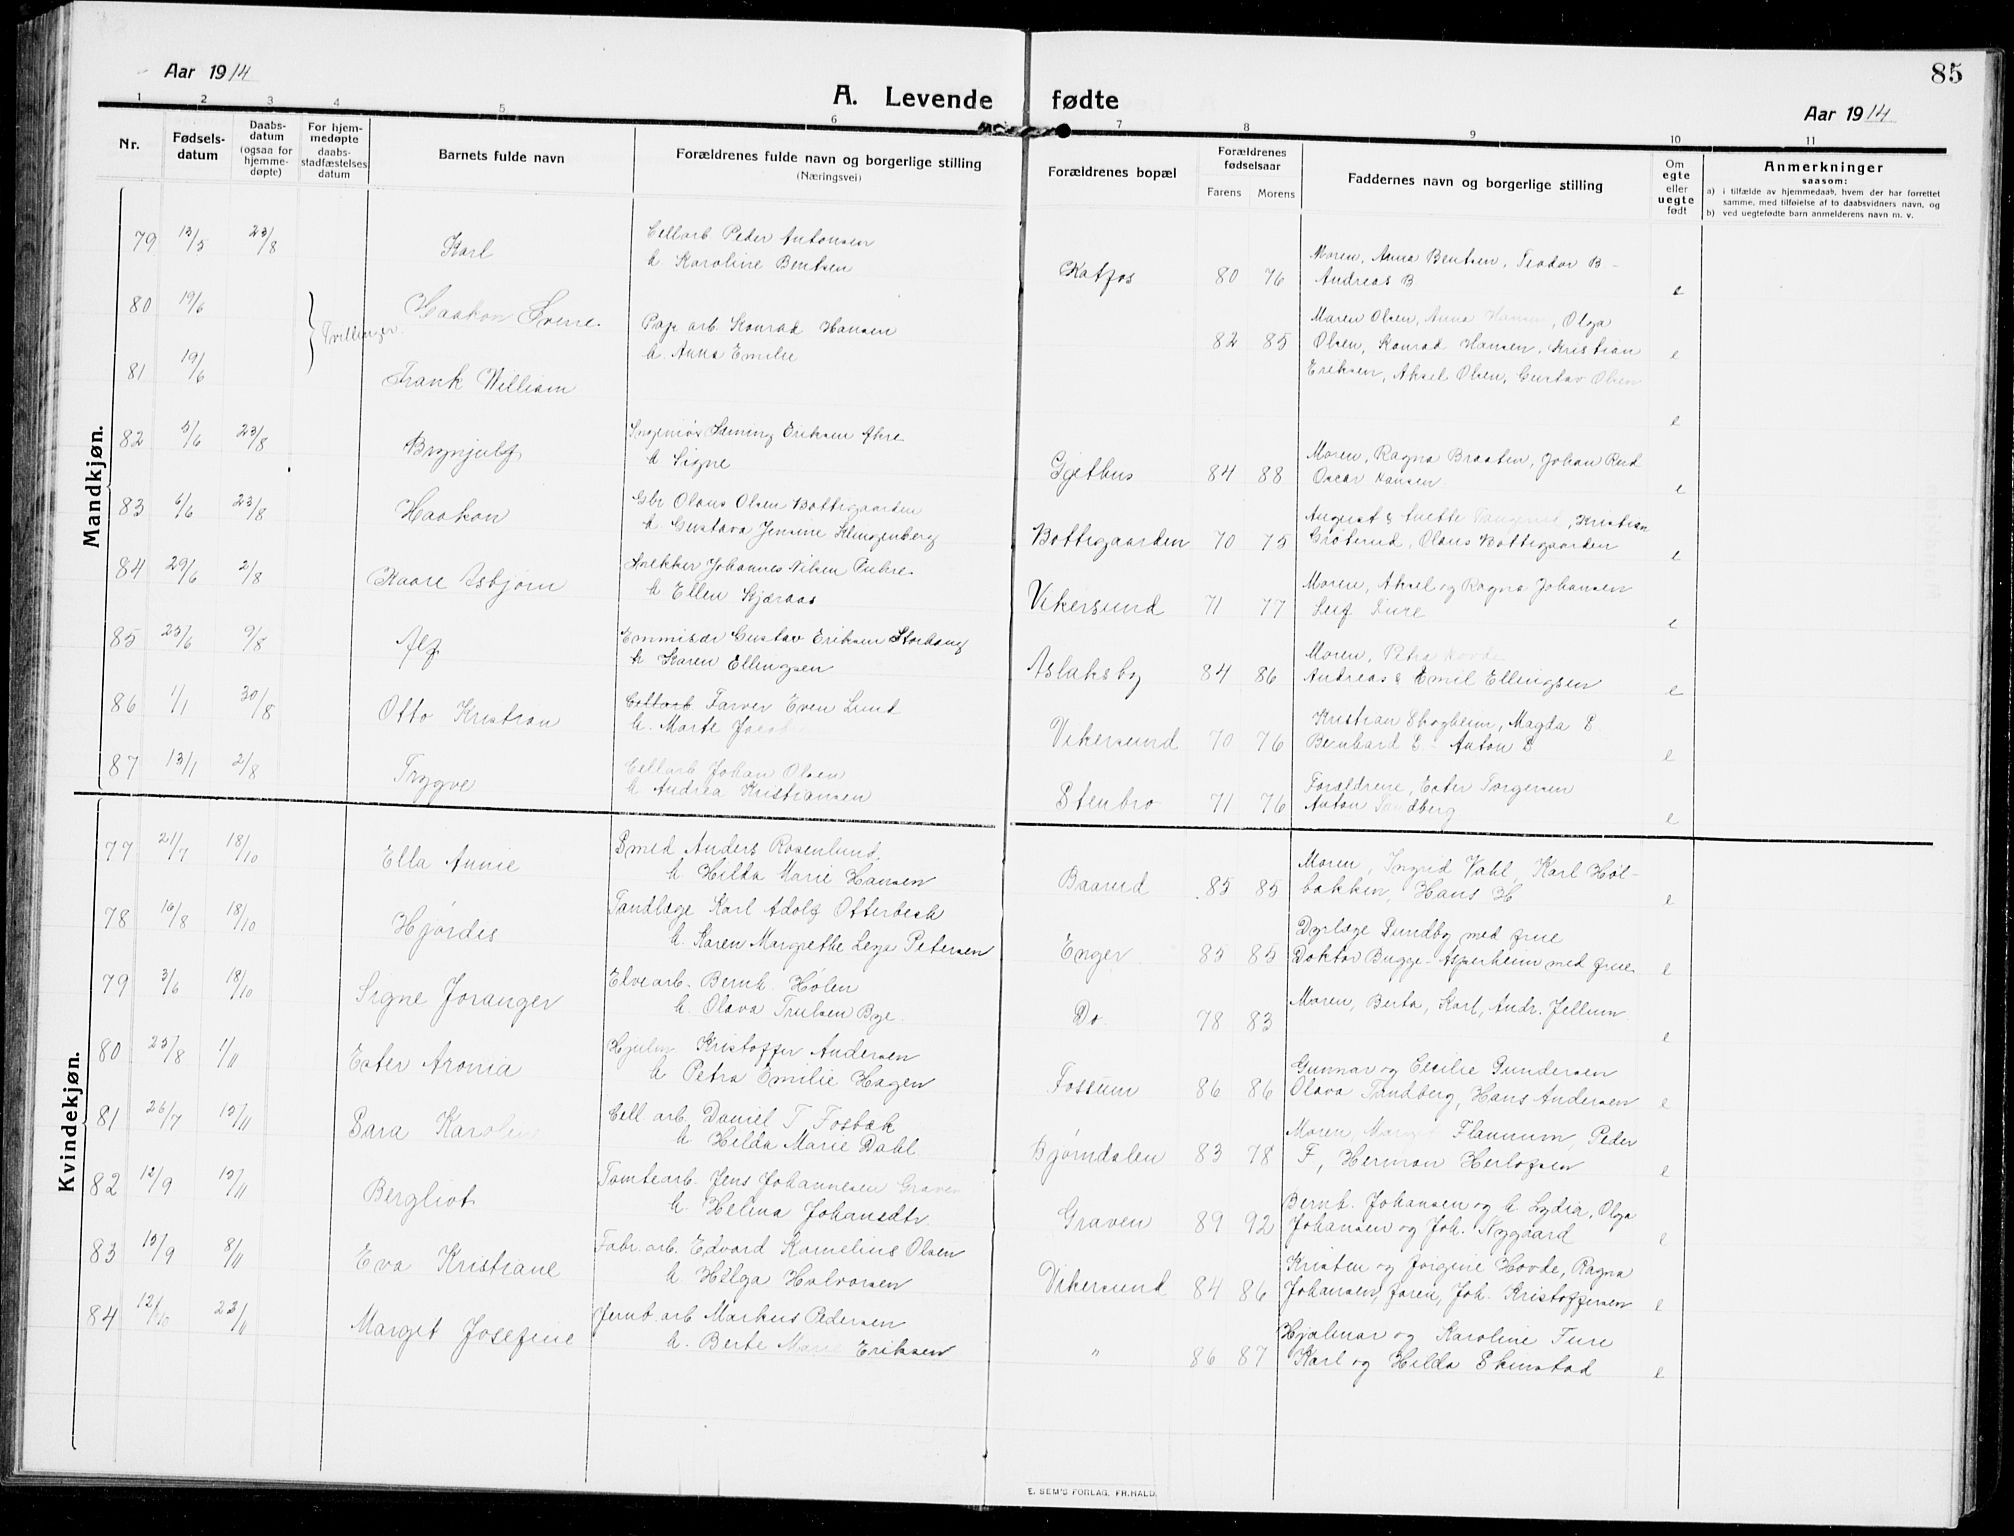 Aar 1914
A. Levende fødte
85
Aar 1914
1 2 3 4 5 6 7 8 9 10 11
Nr.
Fødsels-
datum
Daabs-
datum
(ogsaa for
hjemme-
døpte)
For hjem-
medøpte
daabs-
stadfæstelses
datum
Barnets fulde navn
Forældrenes fulde navn og borgerlige stilling
(Næringsvei)
Forældrenes bopæl
Forældrenes
fødselsaar
Farens Morens
Faddernes navn og borgerlige stilling
Om
egte
eller
uegte
født
Anmerkninger
saasom:
a) i tilfælde av hjemmedaab, hvem der har forrettet
samme, med tilføielse af to daabsvidners navn, og
b) ved uegtefødte barn anmelderens navn m. v.
Mandkjøn.
79 13/5 23/8 Karl
Cellarb Peder Antonsen
h Karoline Bentsen
Katfos 80 76
Moren, Anna Bentsen, Teodor B -
Andreas B e
80 19/6 Haakon Sverre
Tvillinger
Pap arb. Konrad Hansen
h. Anna Emilie
82 85
Maren Olsen, Anna Hansen, Olga
Olsen, Konrad Hansen, Kristian e
Eriksen, Aksel Olsen, Gustav Olsen
81 19/6 Frank William
e
82 5/6 23/8 Brynjulf
Ingeniør Heming Eriksen Akre
h Signe
Gjethus 84 88
Moren, Ragna Braaten, Johan Rud
Oscar Hansen e
83 6/6 23/8 Haakon
Gbr Olaus Olsen Bottegaarden
h Gustava Jensine Klingenberg
Bottegaarden 70 75
August & Anette Tangerud, Kristian
Grøterud, Olaus Bottegaarden e
84 29/6 2/8 Kaare Asbjørn
Snekker Johannes Viken
h Ellen Kjæraas
Vikersund 71 77
Moren, Aksel og Ragna Johansen
Leif Ture e
85 25/6 9/8 Alf
Emmisær Gustav Eriksen Storhaug
h Karen Ellingsen
Aslaksby 84 86
Moren, Petra Hovde
Andreas & Emil Ellingsen e
86 1/1 30/8 Otto Kristian
Cellarb Farver Even Lund
h. Marte Jacob
Vikersund 70 76
Kristian Skogheim, Magda L
Bernhard L - Anton L e
87 13/1 2/8 Trygve
Cellarb Johan Olsen
h Andrea Kristiansen
Stenbro 71 76
Forældrene, Ester Torgersen
Anton Sandberg e
Kvindekjøn.
77 21/7 18/10 Ella Annie
Smed Anders Rosenlund
h Hilda Marie Hansen
Baarud 85 85
Moren, Ingrid Vahl, Karl Høl-
bakken, Hans H e
78 16/8 18/10 Hjørdis
Tandlæge Karl Adolf Otterbech
h. Karen Margrethe Petersen
Enger 85 85
Dyrlæge Sundby med frue
Doktor Bugge-Asperheim med frue e
79 3/6 18/10 Signe Joranger
Elvearb. Bernh. Hølen
h. Olava Trulsen Bye.
Do 78 83
Moren, Berta, Karl, Andr. Jellum
e
80 25/8 1/11 Ester Aronia
Hjulm Kristoffer Andersen
h Petra Emilie Hagen
Fossum 86 86
Gunnar og Cecilie Gundersen
Olava Tandberg, Hans Andersen e
81 26/7 15/11 Sara Karoline
Cell arb. Daniel T Fosbæk
h Hilda Marie Dahl
Bjørndalen 83 78
Moren, Flannum, Peder
F, Herman Herlofsen e
82 12/9 15/11 Bergliot
Tomtearb. Jens Johannesen Graven
h. Helina Johansdtr.
Graven 89 92
Bernh. Johansen og h Lydia, Olga
Johansen og Joh. Nygaard e
83 15/9 8/11 Eva Kristiane
Fabr. arb. Edvard Kornelius Olsen
h Helga Halvorsen
Vikersund 84 86
Kristen og Jorgine Hovde, Ragna
Johansen, Joh. Kristoffersen e
84 12/10 22/11 Marget Josefine
Jernb. arb Markus Pedersen
h. Berte Marie Eriksen
" 86 87
Hjalmar og Karoline Ture
Karl og Hilda Skinstad e
E. SEM'S FORLAG, FR.HALD.